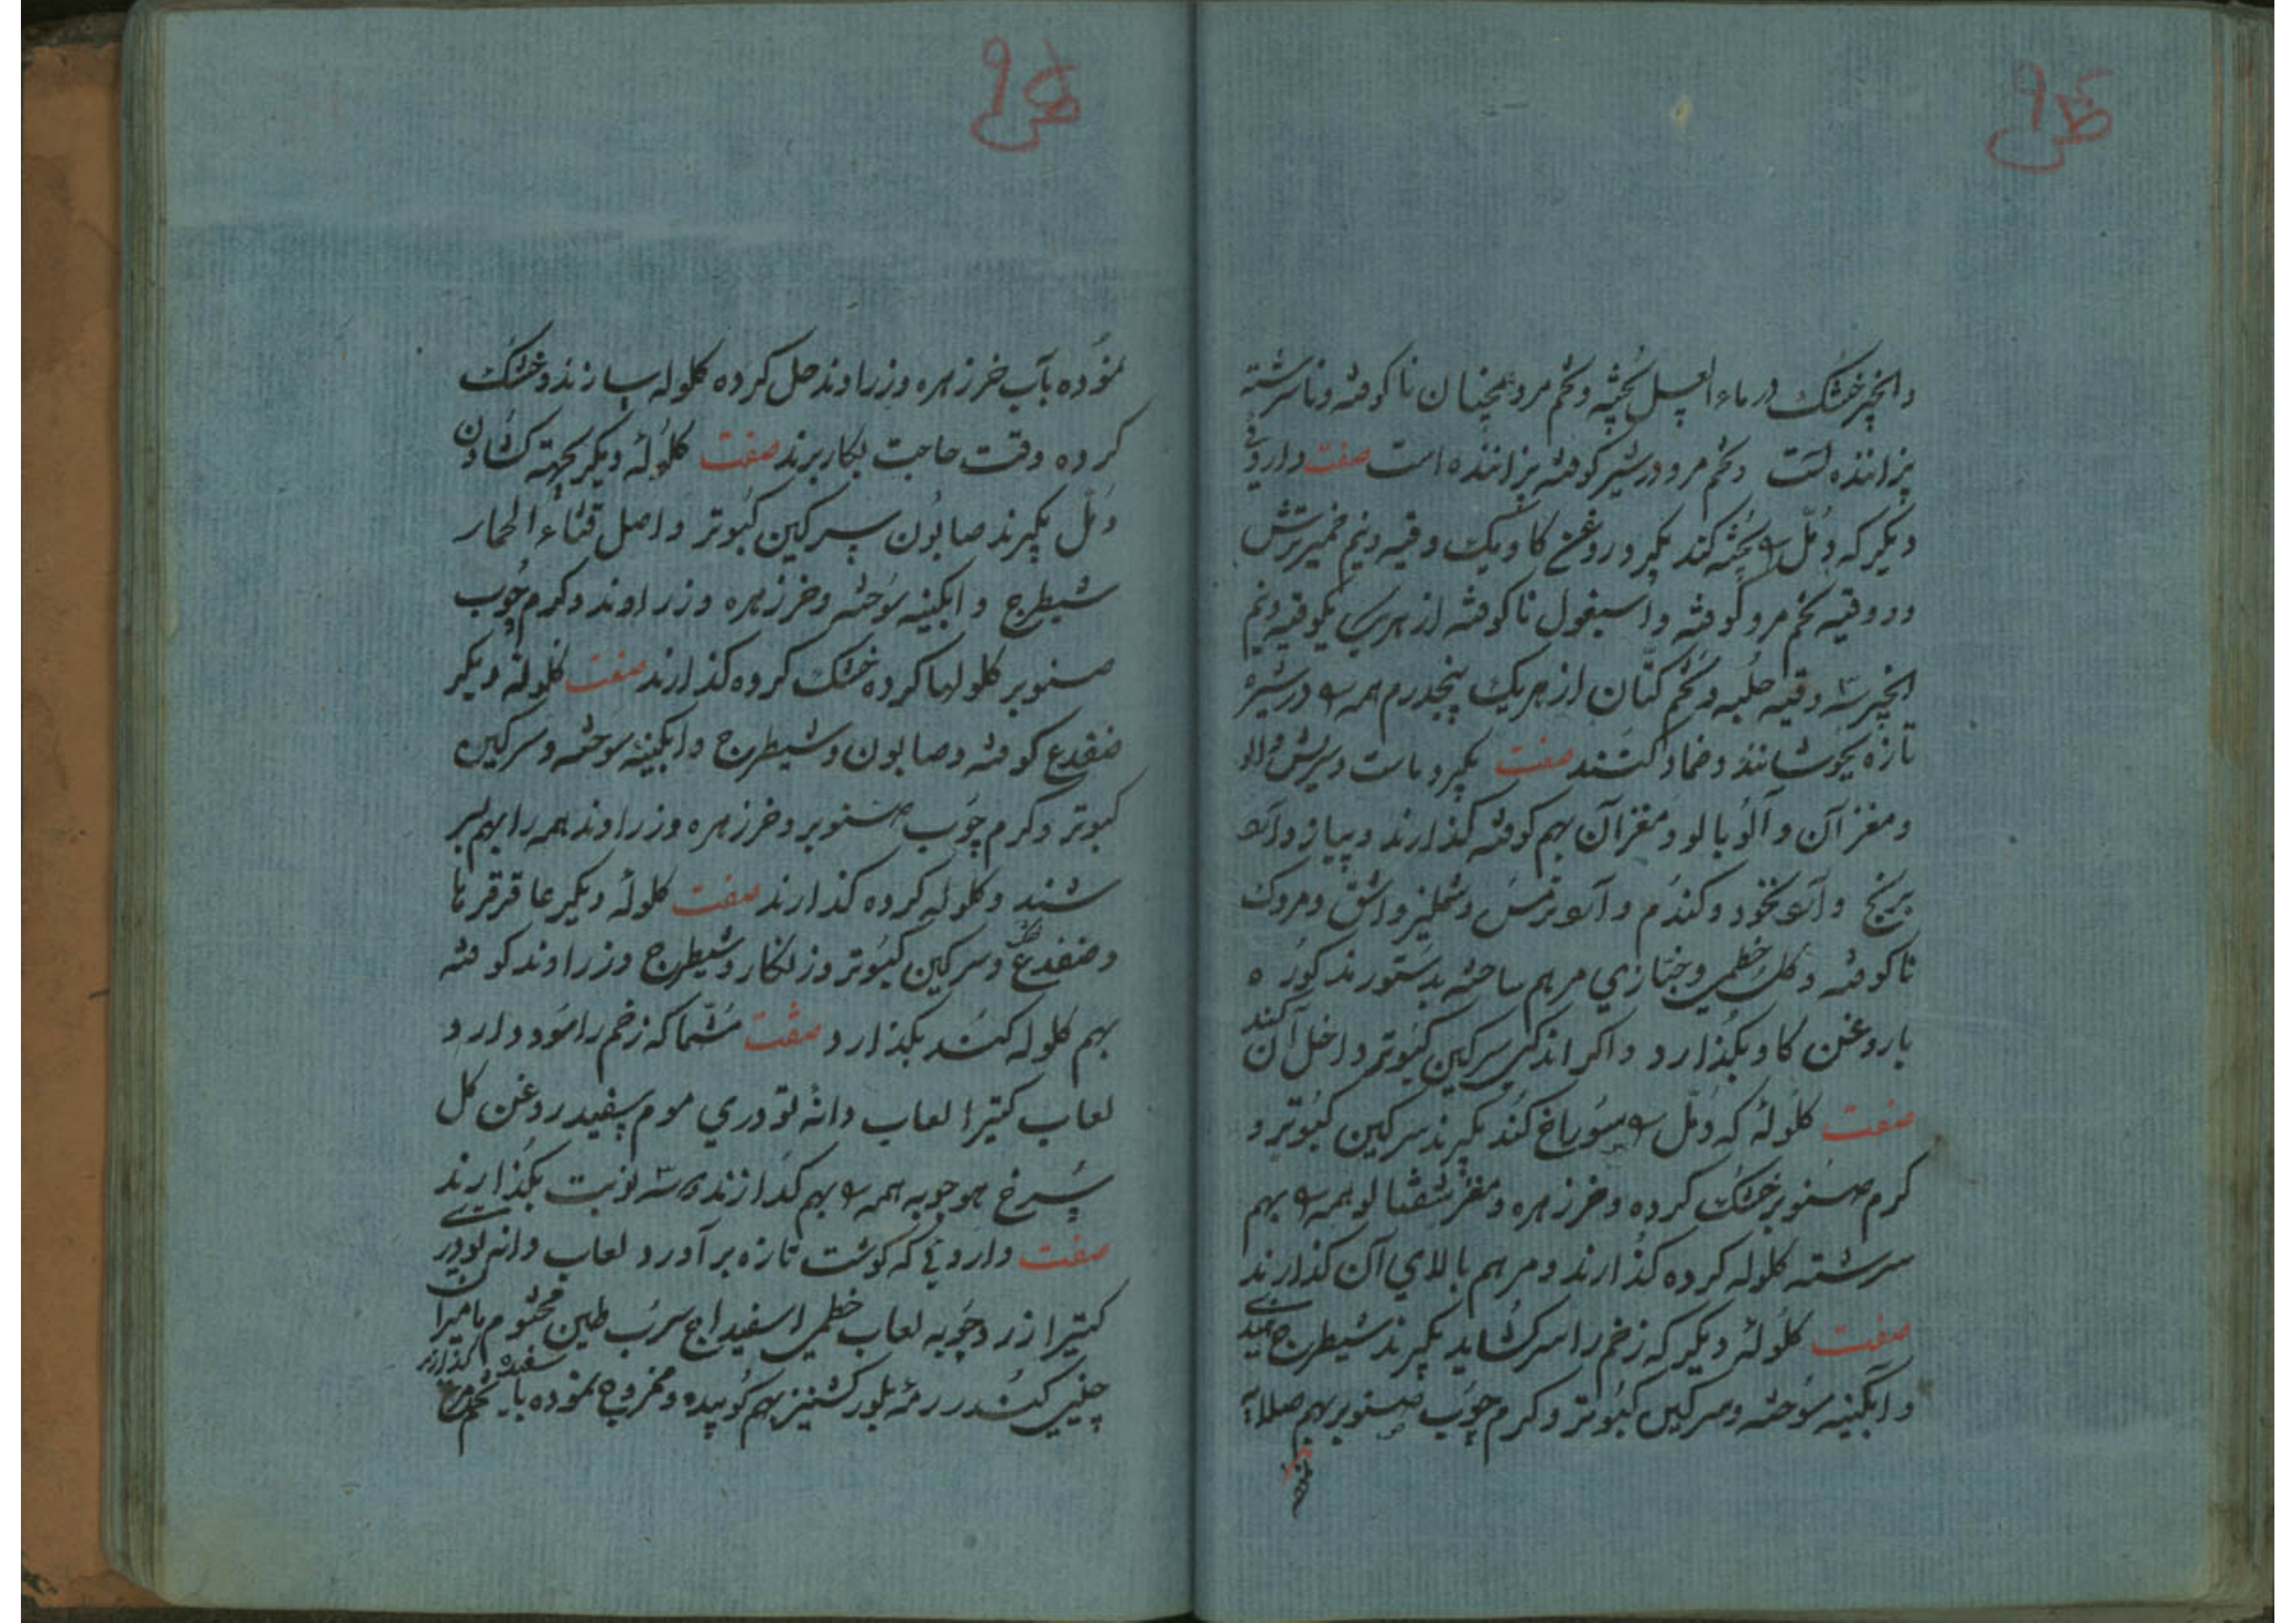 وانجیر خشک در ماء العسل پخته و تخم مرو همچنان ناکوفته و ناسرشته
پزاننده است و تخم مرو در شیر کوفته پزاننده است صفت داروئی
دیکر که دمّل را پخته کند بکیرد روغن کاو یک وقیه و نیم خمیر ترش
دو وقیه تخم مرو کوفته و اسبغول ناکوفته از هر یکی یکوقیه و نیم
انجیر سه وقیه حلبه و تخم کتّان از هر یک پنجدرم همه را در شیر
تازه بجوشانند و ضماد کنند صفت بکیرد ماست و
و مغز آن و آلوبالو و مغز آن بهم کوفته کذارند و پیاز و آرد
برنج و آرد نخود و کندم و آرد ترمس و و اشق و مروک
ناکوفته و کل خطمی و خبّازی مرهم ساخته بدستور مذکوره
با روغن کاو بکذارد و اکر اندکی سرکین کبوتر داخل آن کنند
صفت کلولهٔ که دمّل را سوراخ کند بکیرند سرکین کبوتر و
کرم صنوبر خشک کرده و خرزهره و مغز شفتالو همه را بهم
سرشته کلوله کرده کذارند و مرهم بالای آن کذارند
صفت کلولهٔ دیکر که زخم را سر کشاید بکیرند شیطرج هندی
و آبکینه سوخته و سرکین کبوتر و کرم چوب صنوبر بهم صلایه
نموده
نموده بآب خرزهره و زراوند حل کرده کلوله سازند و خشک
کرده وقت حاجت بکار برند صفت کلولهٔ دیکر بجهة کشادن
دمّل بکیرند صابون سرکین کبوتر و اصل قثاء الحمار
شیطرج و ابکینه سوخته و خرزهره و زراوند و کرم چوب
صنوبر کلولها کرده خشک کرده کذارند صفت کلولهٔ دیکر
ضفدع کوفته و صابون و شیطرج و ابکینه سوخته و سرکین
کبوتر و کرم چوب صنوبر و خرزهره و زراوند همه را بهم بسر
شند و کلوله کرده کذارند صفت کلولهٔ دیکر عاقرقرحا
و ضفدع و سرکین کبوتر و زنکار و شیطرج و زراوند کوفته
بهم کلوله کنند بکذارد صفت شمّا که زخم را سود دارد
لعاب کتیرا لعاب دانهٔ تودری موم سفید روغن کل
سرخ هوجوبه همه را بهم کدازند و سه نوبت بکذارند
صفت داروئی که کوشت تازه برآورد لعاب دانه تودری
کتیرا زردچوبه لعاب خطمی اسفیداج سرب طین مختوم مامیران
چینی کندر رمهٔ بلور کشنیز بهم کوبیده و ممزوج نموده با سفیده تخم مرغ کذارند